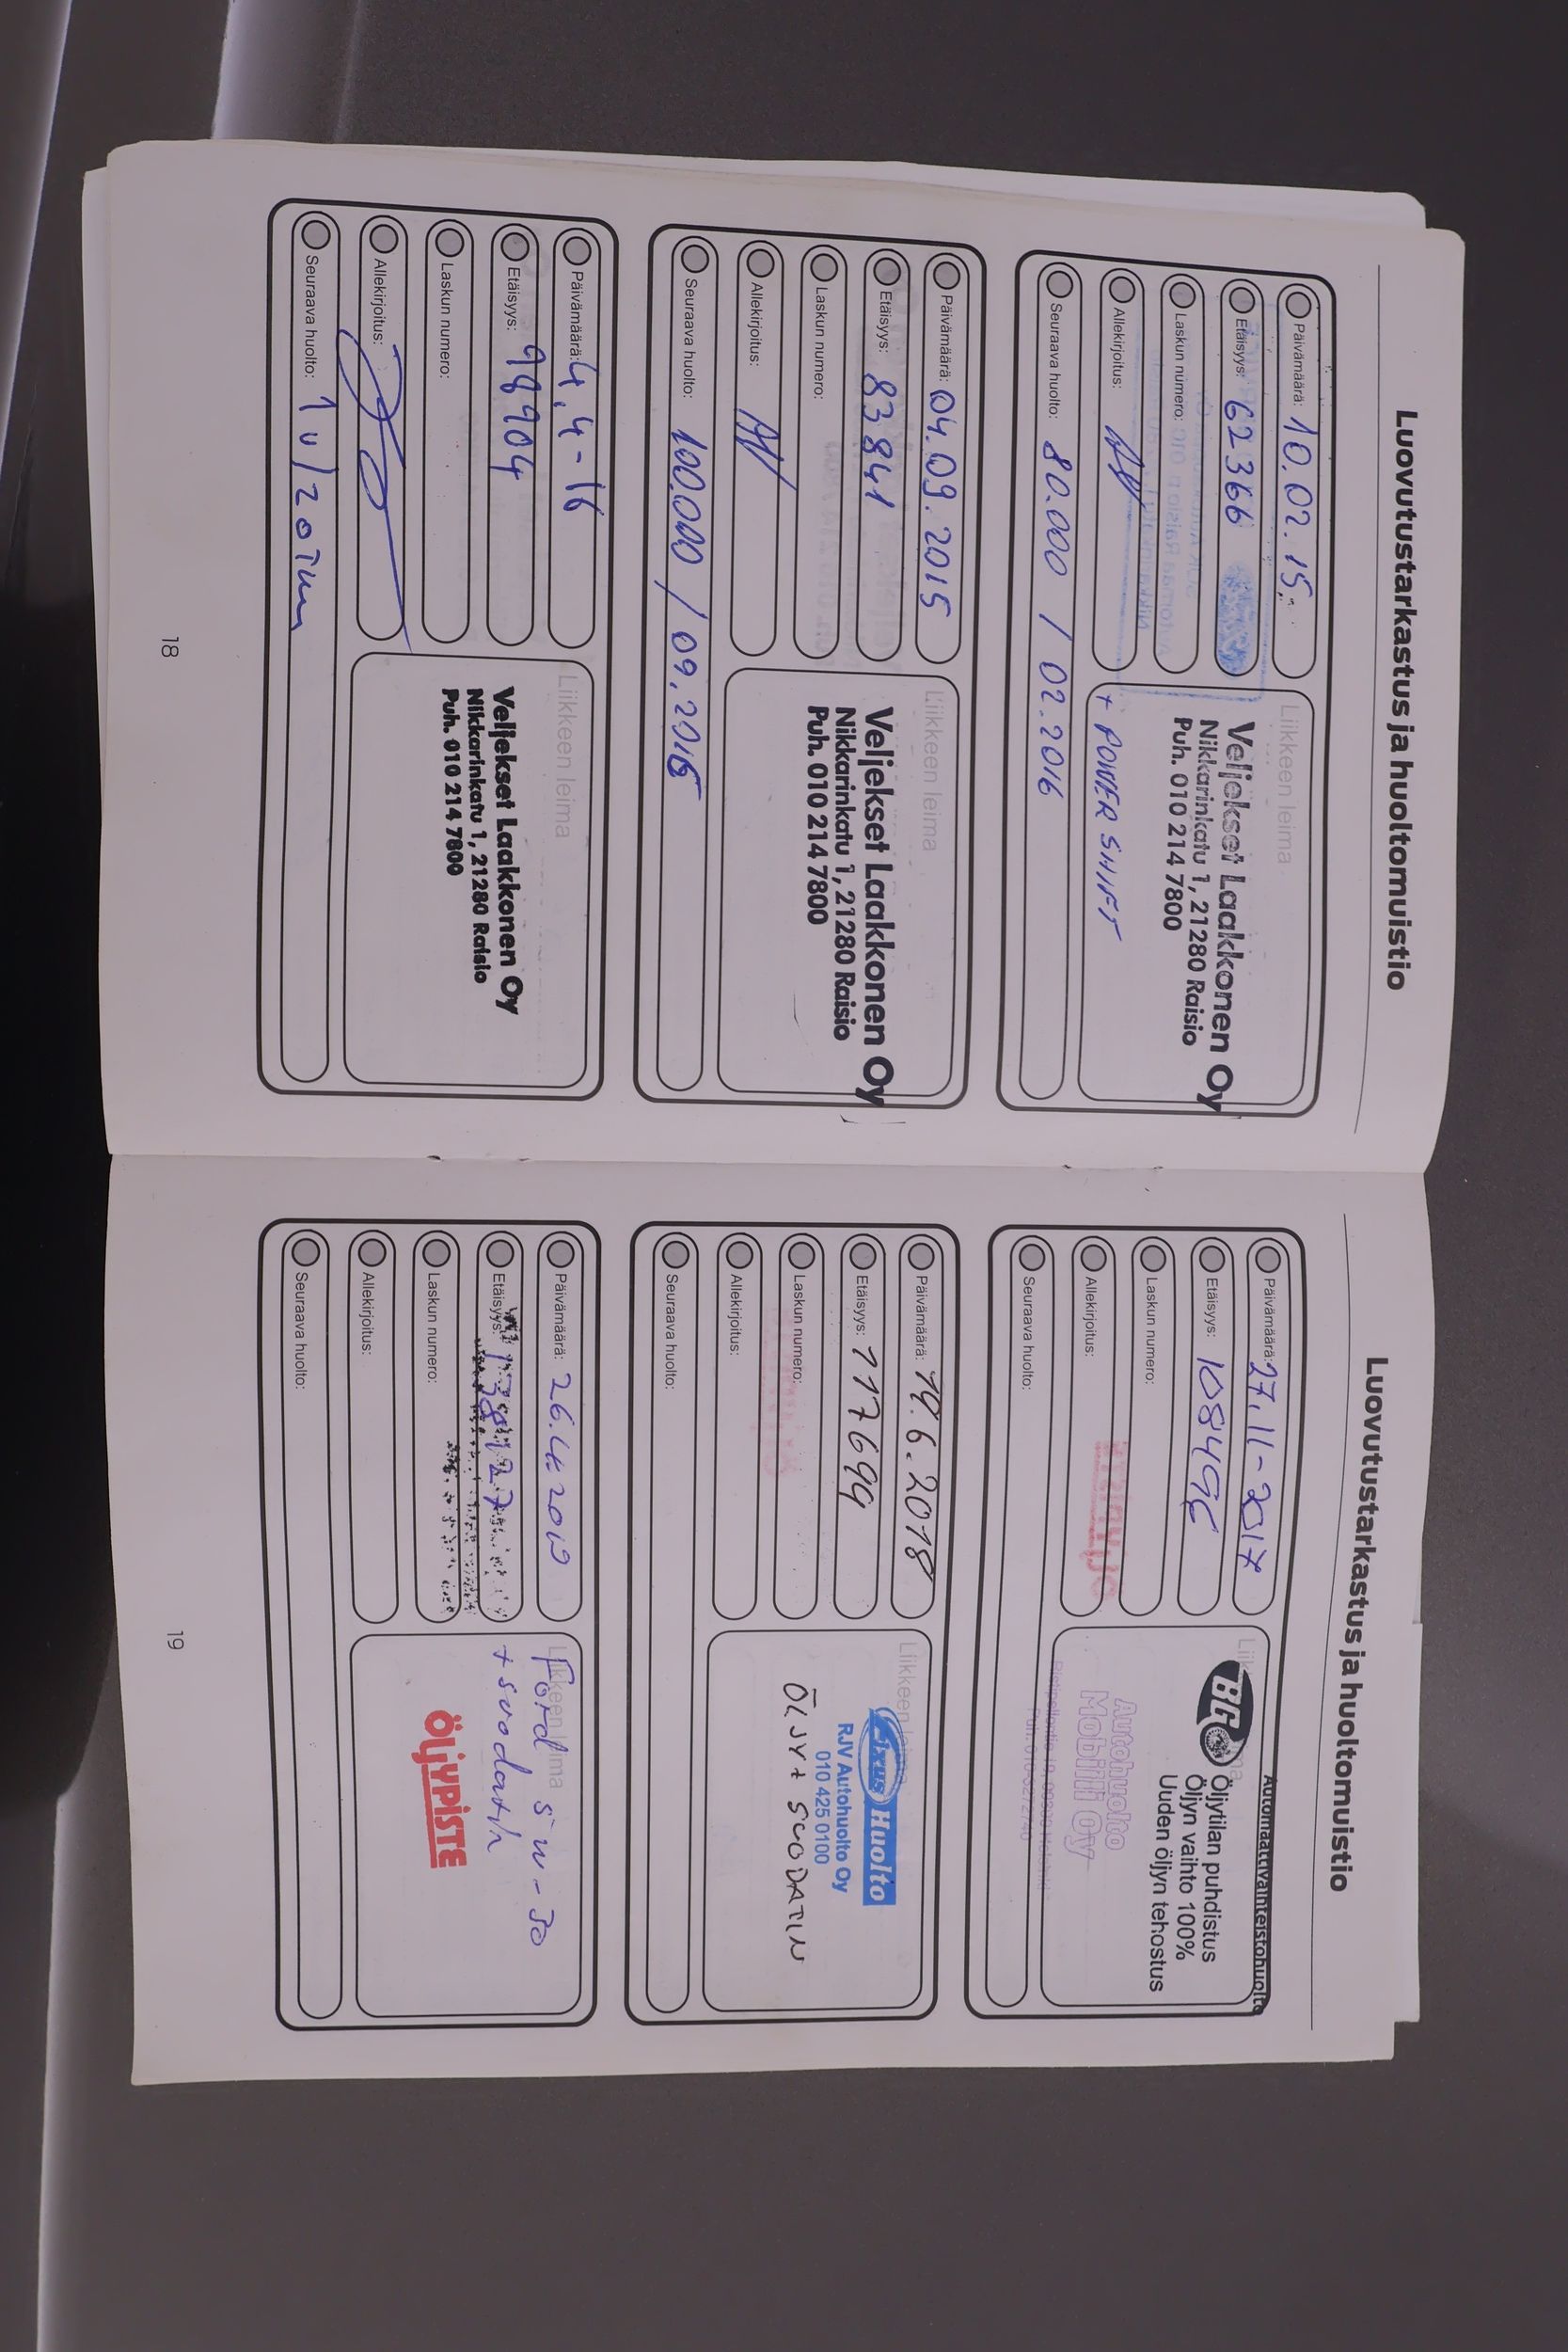 Luovutustarkastus ja huoltomuistio
Päivämäärä: 10.02.15
Etäisyys: 62366
Laskun numero:
Allekirjoitus:
Seuraava huolto: 80.000 / 02.2016
Liikkeen leima
Veljekset Laakkonen Oy
Nikkarinkatu 1, 21280 Raisio
Puh. 010 214 7800
+ POWER SHIFT
Päivämäärä: 04.09.2015
Etäisyys: 83841
Laskun numero:
Allekirjoitus:
Seuraava huolto: 100.000 / 09.2016
Liikkeen leima
Veljekset Laakkonen Oy
Nikkarinkatu 1, 21280 Raisio
Puh. 010 214 7800
Päivämäärä: 4.4-16
Etäisyys: 99904
Laskun numero:
Allekirjoitus:
Seuraava huolto: 1v/20Tkm
Liikkeen leima
Veljekset Laakkonen Oy
Nikkarinkatu 1, 21280 Raisio
Puh. 010 214 7800
18
Luovutustarkastus ja huoltomuistio
Päivämäärä: 27.11-2017
Etäisyys: 108496
Laskun numero:
Allekirjoitus:
Seuraava huolto:
Automaattivaihteistohuolto
BG
Öljytilan puhdistus
Öljyn vaihto 100%
Uuden öljyn tehostus
Autohuolto
Mobiili Oy
Päivämäärä: 14.6.2018
Etäisyys: 117699
Laskun numero:
Allekirjoitus:
Seuraava huolto:
Liikkeen leima
Fixus Huolto
RJV Autohuolto Oy
010 425 0100
ÖLJYT SUODATIN
Päivämäärä: 26.4.2019
Etäisyys:
Laskun numero:
Allekirjoitus:
Seuraava huolto:
Liikkeen leima
Ford 5w-30
+ suodatin
ÖLJYPISTE
19